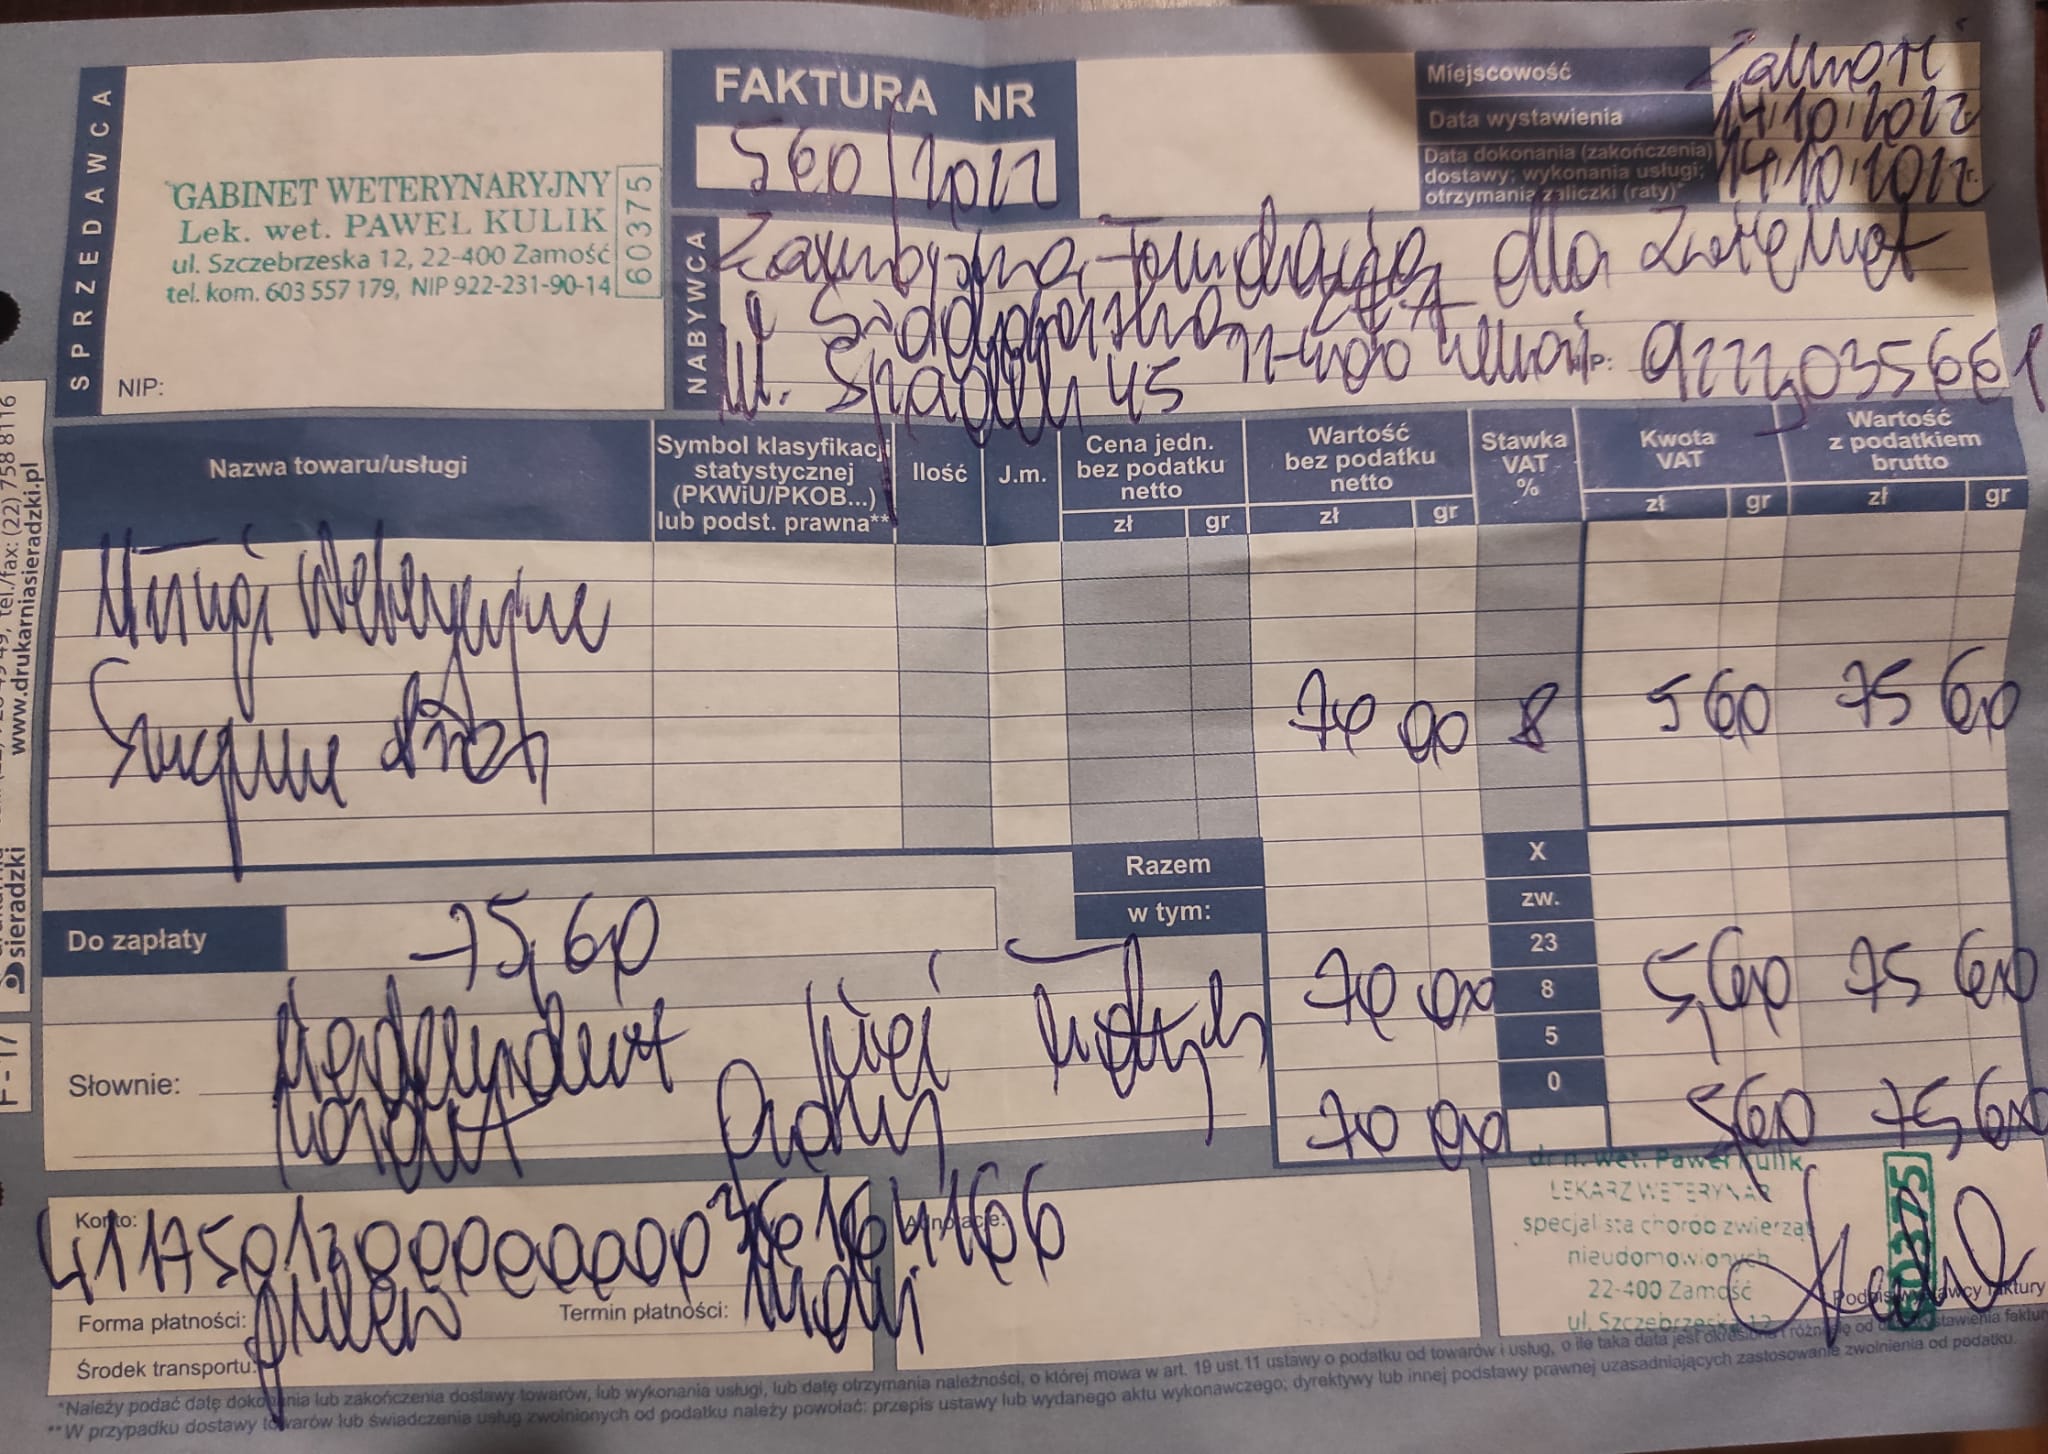 SPRZEDAWCA
GABINET WETERYNARYJNY
Lek. wet. PAWEŁ KULIK
ul. Szczebrzeska 12, 22-400 Zamość
tel. kom. 603 557 179, NIP 922-231-90-14
60375
NIP:
FAKTURA NR
560/2022
Miejscowość Zamość
Data wystawienia 14.10.2022 r.
Data dokonania (zakończenia)
dostawy; wykonania usługi;
otrzymania zaliczki (raty)* 14.10.2022 r.
NABYWCA
Fundacja dla Zwierząt
ul. 45 22-400 Zamość NIP: 9222035661
Nazwa towaru/usługi
Symbol klasyfikacji
statystycznej
(PKWiU/PKOB...)
lub podst. prawna**
Ilość
J.m.
Cena jedn.
bez podatku
netto
zł gr
Wartość
bez podatku
netto
zł gr
Stawka
VAT
%
Kwota
VAT
zł gr
Wartość
z podatkiem
brutto
zł gr
Usługi Weterynaryjne
70 00 8 5 60 75 60
Razem X
w tym: zw.
23
70 00 8 5,60 75 60
5
0
70 00 5 60 75 60
Do zapłaty 75,60
Słownie: siedemdziesiąt pięć złotych
Konto:
Adnotacje:
Forma płatności: przelew Termin płatności:
Środek transportu:
dr n. wet. Paweł Kulik
LEKARZ WETERYNARII
specjalista chorób zwierząt
nieudomowionych
22-400 Zamość
ul. Szczebrzeska 12
60375
Podpis wystawcy faktury
*Należy podać datę dokonania lub zakończenia dostawy towarów, lub wykonania usługi, lub datę otrzymania należności, o której mowa w art. 19 ust.11 ustawy o podatku od towarów i usług, o ile taka data jest określona i różni się od daty wystawienia faktury
**W przypadku dostawy towarów lub świadczenia usług zwolnionych od podatku należy powołać: przepis ustawy lub wydanego aktu wykonawczego; dyrektywy lub innej podstawy prawnej uzasadniających zastosowanie zwolnienia od podatku.
F-17
sieradzki
www.drukarniasieradzki.pl
tel./fax: (22) 758 8116